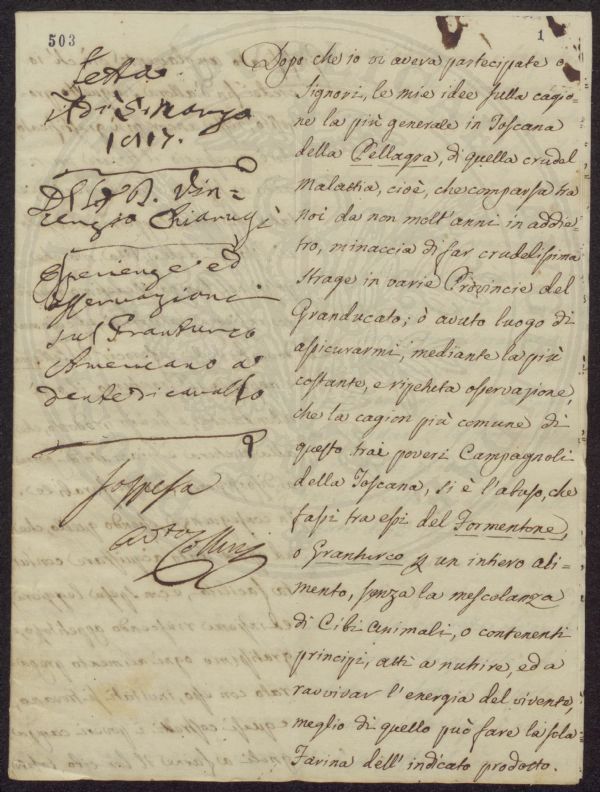 503
1
Letta
il dì 5. Marzo
1817.
Del Sig. D. Vin=
cenzio Chiarugi
Esperienze ed
osservazioni
sul Granturco
Americano a
dente di cavallo
Sospesa
Dopo che io vi aveva partecipate o
Signori, le mie idee sulla cagio=
ne la più generale in Toscana
della Pellagra, di quella crudel
Malattia, cioè, che comparsa tra
noi da non molt'anni in addie=
tro, minaccia di far crudelissima
strage in varie Provincie del
Granducato; ò avuto luogo di
assicurarmi, mediante la più
costante, e ripetuta osservazione,
che la cagion più comune di
questo trai poveri Campagnoli
della Toscana, si è l'abuso, che
fassi tra essi del Formentone,
o Granturco p un intiero ali=
mento, senza la mescolanza
di Cibi animali, o contenenti
principj, atti a nutrire, ed a
ravvivar l'energia del vivente
meglio di quello può fare la sola
Farina dell'indicato prodotto.